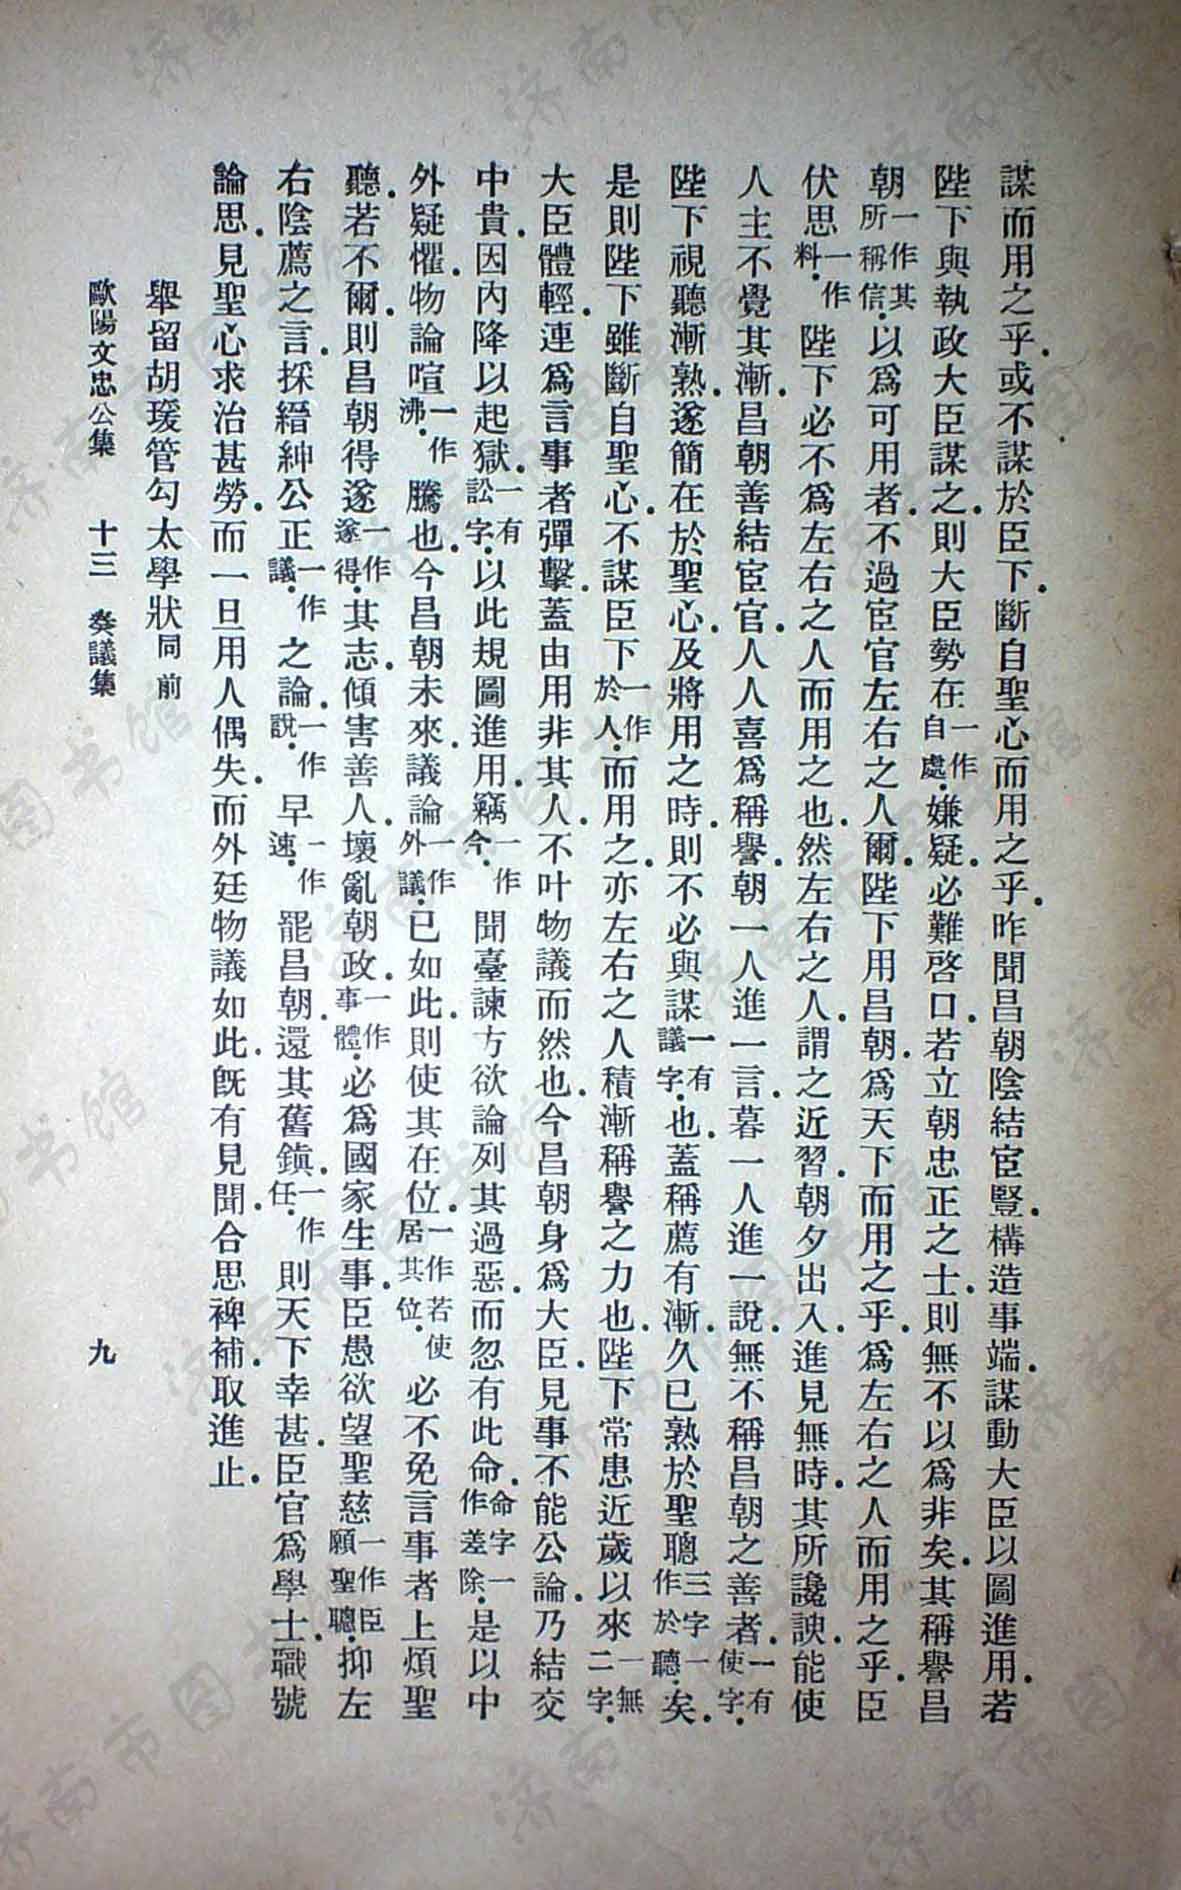 謀而用之乎.或不謀於臣下.斷自聖心而用之乎.昨聞昌朝陰結宦豎.構造事端.謀動大臣以圖進用.若
陛下與執政大臣謀之.則大臣勢在一作自處.嫌疑.必難啓口.若立朝忠正之士.則無不以爲非矣.其稱譽昌
朝一作其所稱信.以爲可用者.不過宦官左右之人爾.陛下用昌朝.爲天下而用之乎.爲左右之人而用之乎.臣
伏思一作料.陛下必不爲左右之人而用之也.然左右之人.謂之近習.朝夕出入.進見無時.其所讒諛.能使
人主不覺其漸.昌朝善結宦官.人人喜爲稱譽.朝一人進一言.暮一人進一說.無不稱昌朝之善者.一有使字.
陛下視聽漸熟.遂簡在於聖心.及將用之時.則不必與謀一有議字.也.蓋稱薦有漸.久已熟於聖聰三字一作於聽.矣.
是則陛下雖斷自聖心.不謀臣下一作於人.而用之.亦左右之人積漸稱譽之力也.陛下常患近歲以來一無二字.
大臣體輕.連爲言事者彈擊.蓋由用非其人.不叶物議而然也.今昌朝身爲大臣.見事不能公論.乃結交
中貴.因內降以起獄.一有訟字.以此規圖進用.竊一作今.聞臺諫方欲論列其過惡.而忽有此命.命字一作差除.是以中
外疑懼.物論喧一作沸.騰也.今昌朝未來.議論一作外議.已如此.則使其在位.一作若使居其位.必不免言事者上煩聖
聽.若不爾.則昌朝得遂一作遂得.其志.傾害善人.壞亂朝政.一作事體.必爲國家生事.臣愚欲望聖慈一作臣願聖聰.抑左
右陰薦之言.採縉紳公正一作議.之論.一作說.早一作速.罷昌朝.還其舊鎮.一作任.則天下幸甚.臣官爲學士.職號
論思.見聖心求治甚勞.而一旦用人偶失.而外廷物議如此.旣有見聞.合思裨補.取進止.
舉留胡瑗管勾太學狀同前
歐陽文忠公集 十三 奏議集 九
济南市图书馆